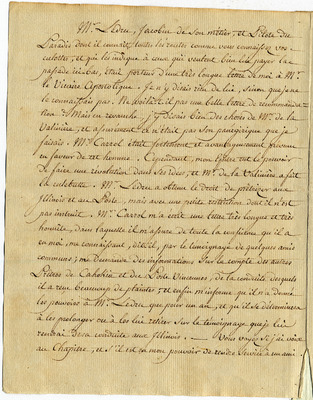 Mr. Ledru, Jacobin de son métier, et Pilote du
Paradis dont il connaît toutes les routes comme vous connaissez vos
culottes, et qui les indique à ceux qui veulent bien lui payer la
passade ici bas, était porteur d'une très longue lettre de moi à Mr.
le Vicaire Apostolique. Je n'y disais rien de lui, sinon que je ne
le connaissais pas. Ne voilà-t-il pas une belle lettre de recommanda-
tion? Mais en revanche, j'y disais bien des choses de Mr. de la
Valinière, et assurément ce n'était pas son panégyrique que je
faisais. Mr. Carrol était fortement et avantageusement prévenu
en faveur de cet homme. Cependant, mon épître eut le pouvoir
de faire une révolution dans ses idées, et Mr. de la Valinière a fait
la culebutte. Mr. Ledru a obtenu le droit de prêcher aux
Illinois et au Poste, mais avec une petite restriction dont il n'est
pas content. Mr. Carrol m'a écrit une lettre très longue et très
honnête, dans laquelle il m'assure de toute la confiance qu'il a
en moi, me connaissant, dit-il, par le témoignage de quelques amis
communs; me demande des informations sur le compte des autres
Prêtres de Cahokia et du Poste Vincennes, de la conduite desquels
il a reçu beaucoup de plaintes; et enfin m'informe qu'il n'a donné
les pouvoirs à Mr. Ledru que pour un an, et qu'il se déterminera
à les prolonger ou à les lui retirer sur le témoignage que je lui
rendrai de sa conduite aux Illinois. — Vous voyez si j'ai voix
au Chapitre, et s'il est en mon pouvoir de rendre service à un ami.